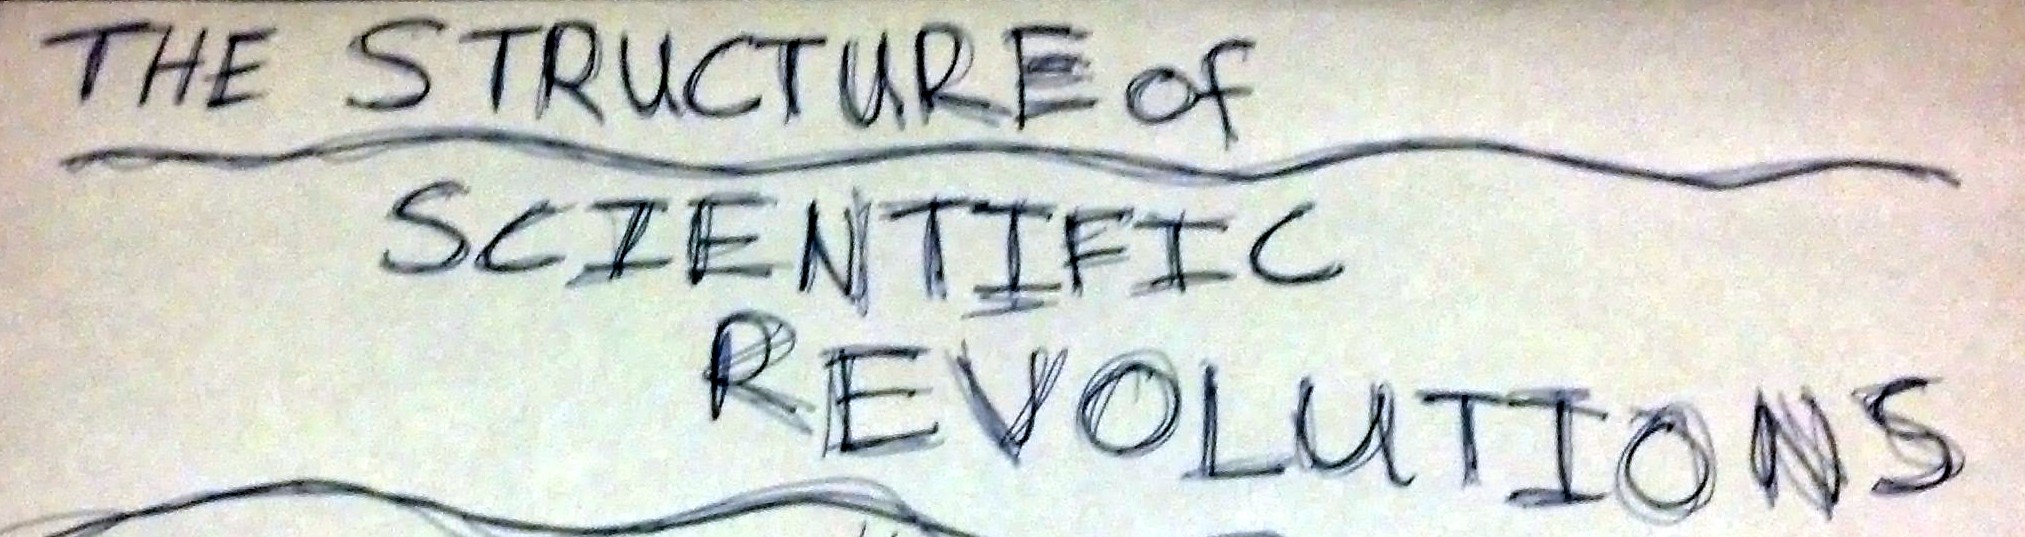 THE STRUCTURE of
SCIENTIFIC
REVOLUTIONS